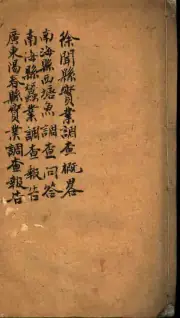 徐聞縣實業調查概畧
南海縣西塘魚調查問答
南海縣蠶業調查報告
廣東陽春縣實業調查報告